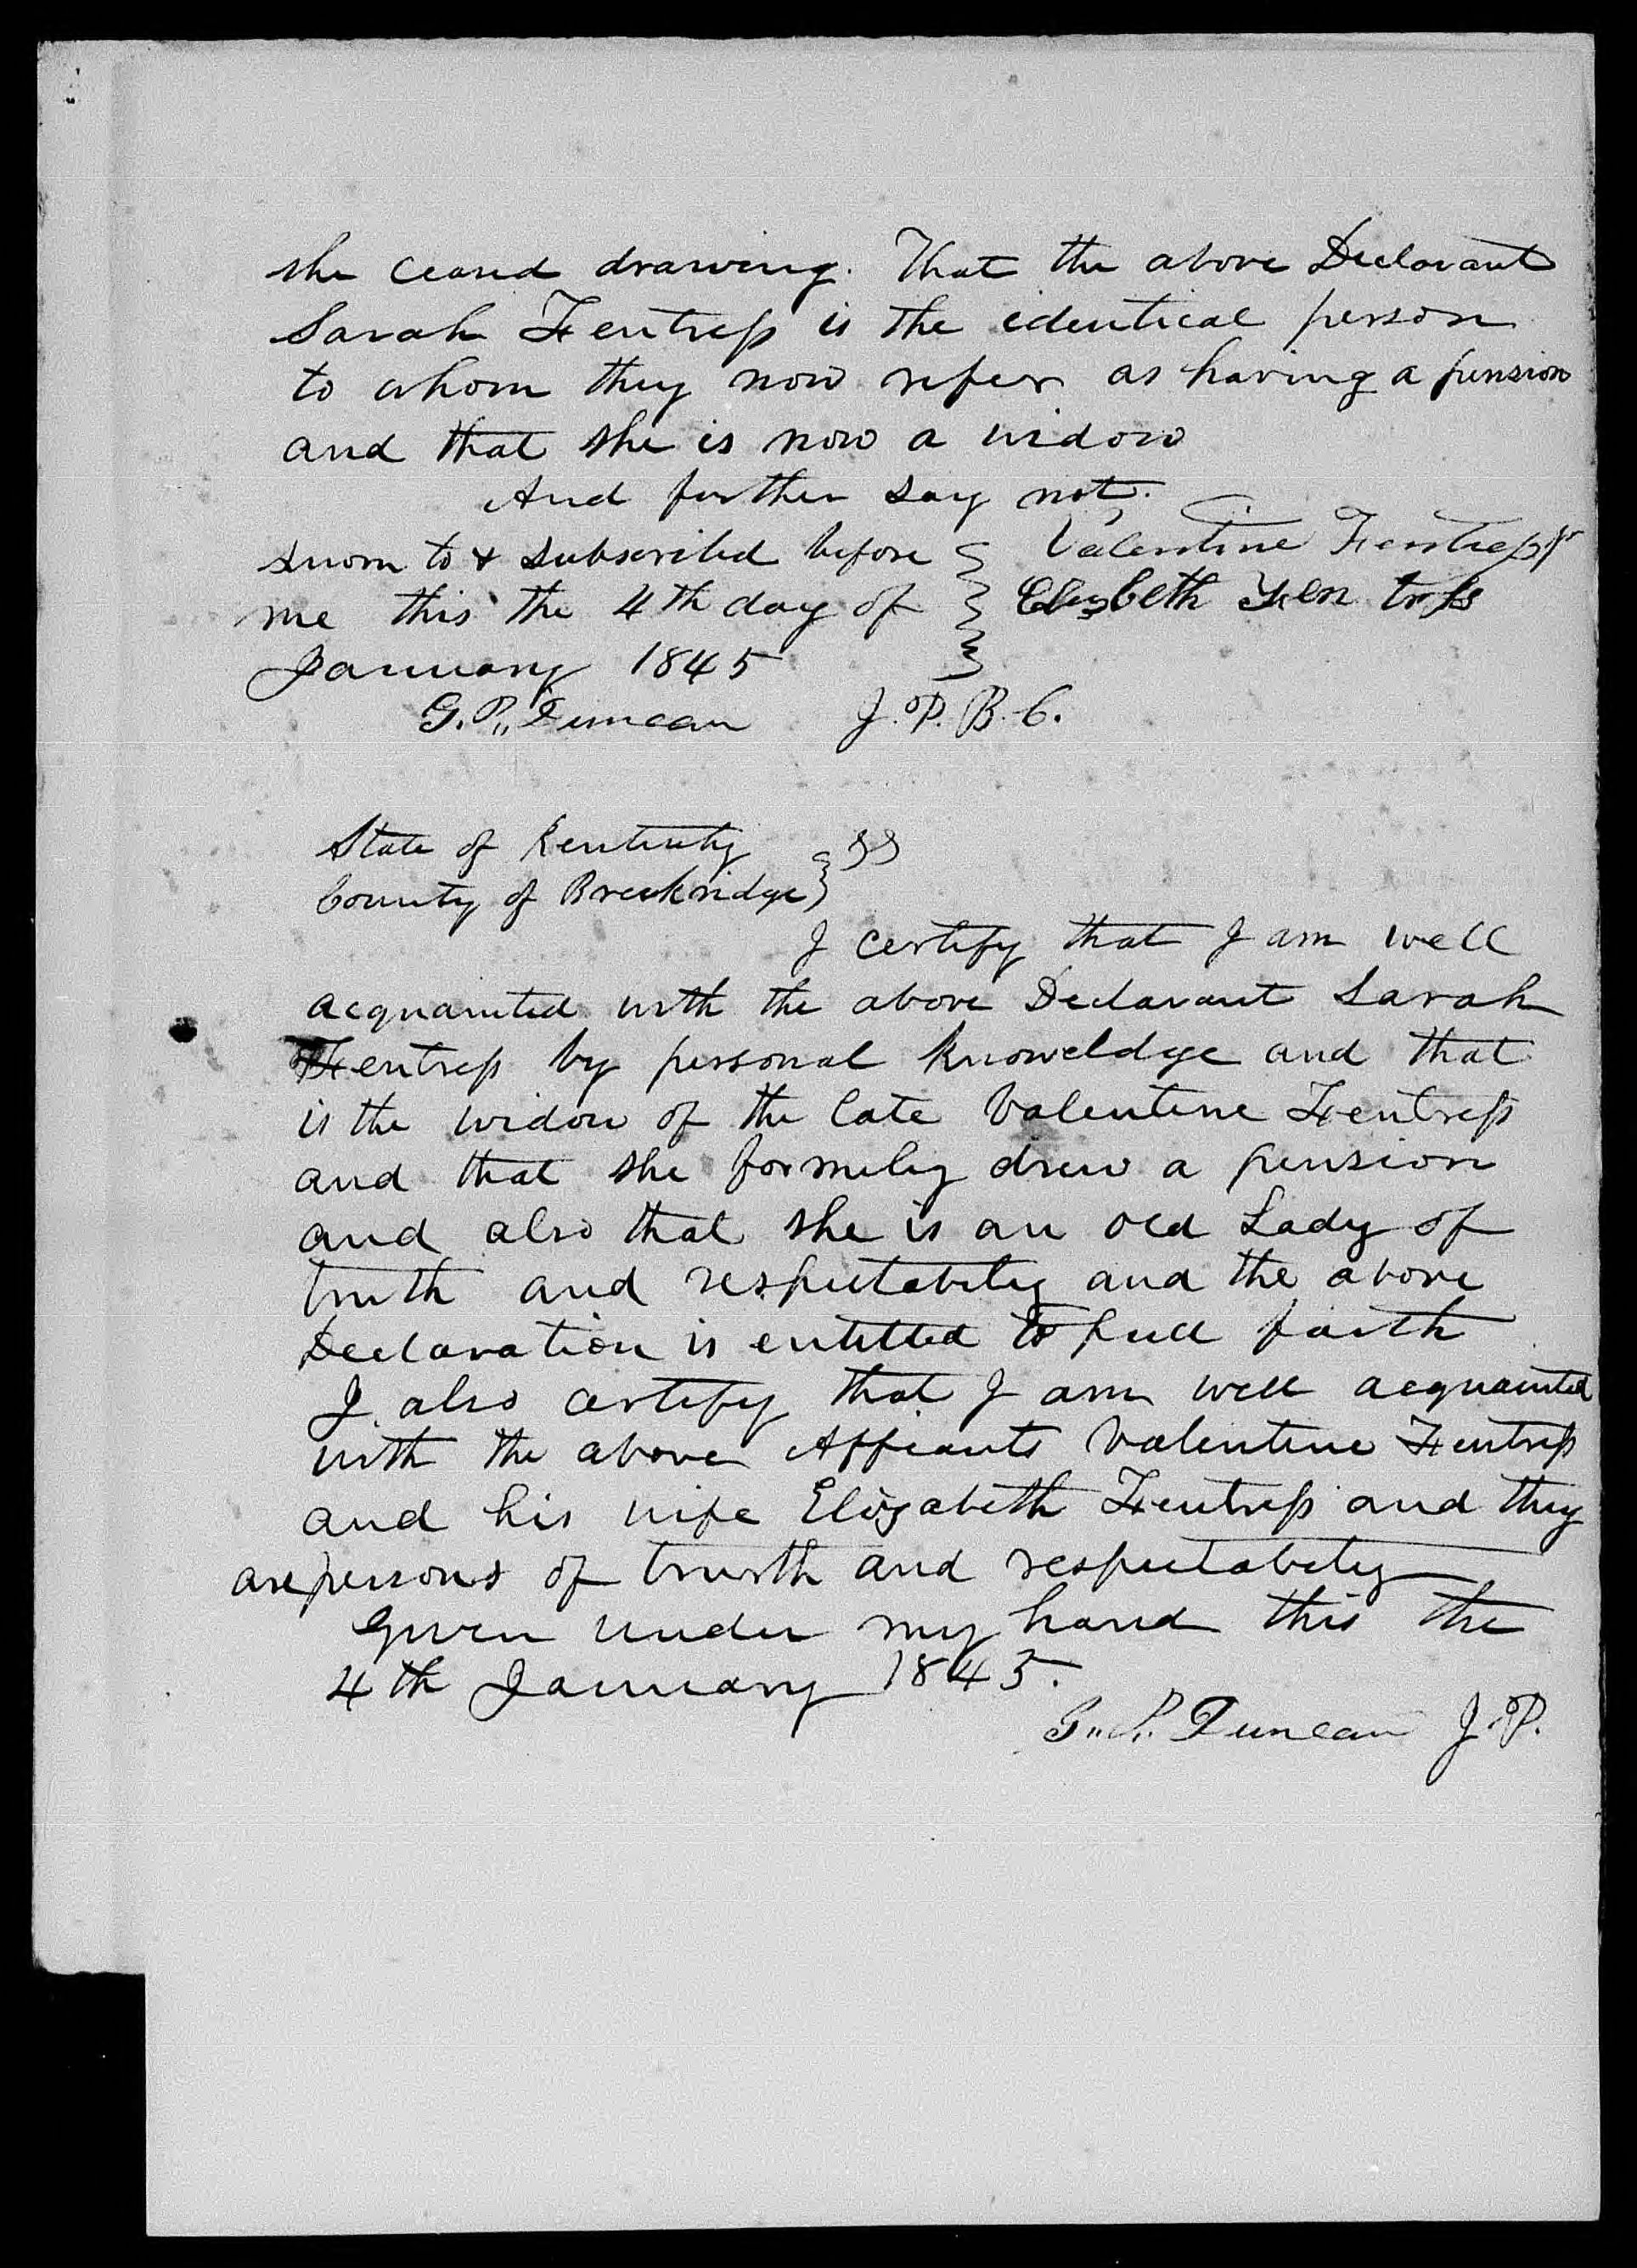 she ceased drawing. That the above Declarant
Sarah Fentress is the identical person
to whom they now refer as having a pension
and that she is now a widow
And further say not.
sworn to & subscribed before
me this the 4th day of
January 1845
Valentine Fentress
Elizbeth Fen tress
G. P. Duncan J. P. B. C.
State of Kentucky
County of Breckridge } SS
I certify that I am well
acquainted with the above Declarant Sarah
Fentress by personal knoweldge and that
is the widow of the late Valentine Fentress
and that she formily drew a pension
and also that she is an old Lady of
truth and respectability and the above
Declaration is entitled to full faith
I also certify that I am well acquainted
with the above Affiants Valentine Fentress
and his wife Elizabeth Fentress and they
are persons of truth and respectability
Given under my hand this the
4th January 1845.
G. P. Duncan J. P.